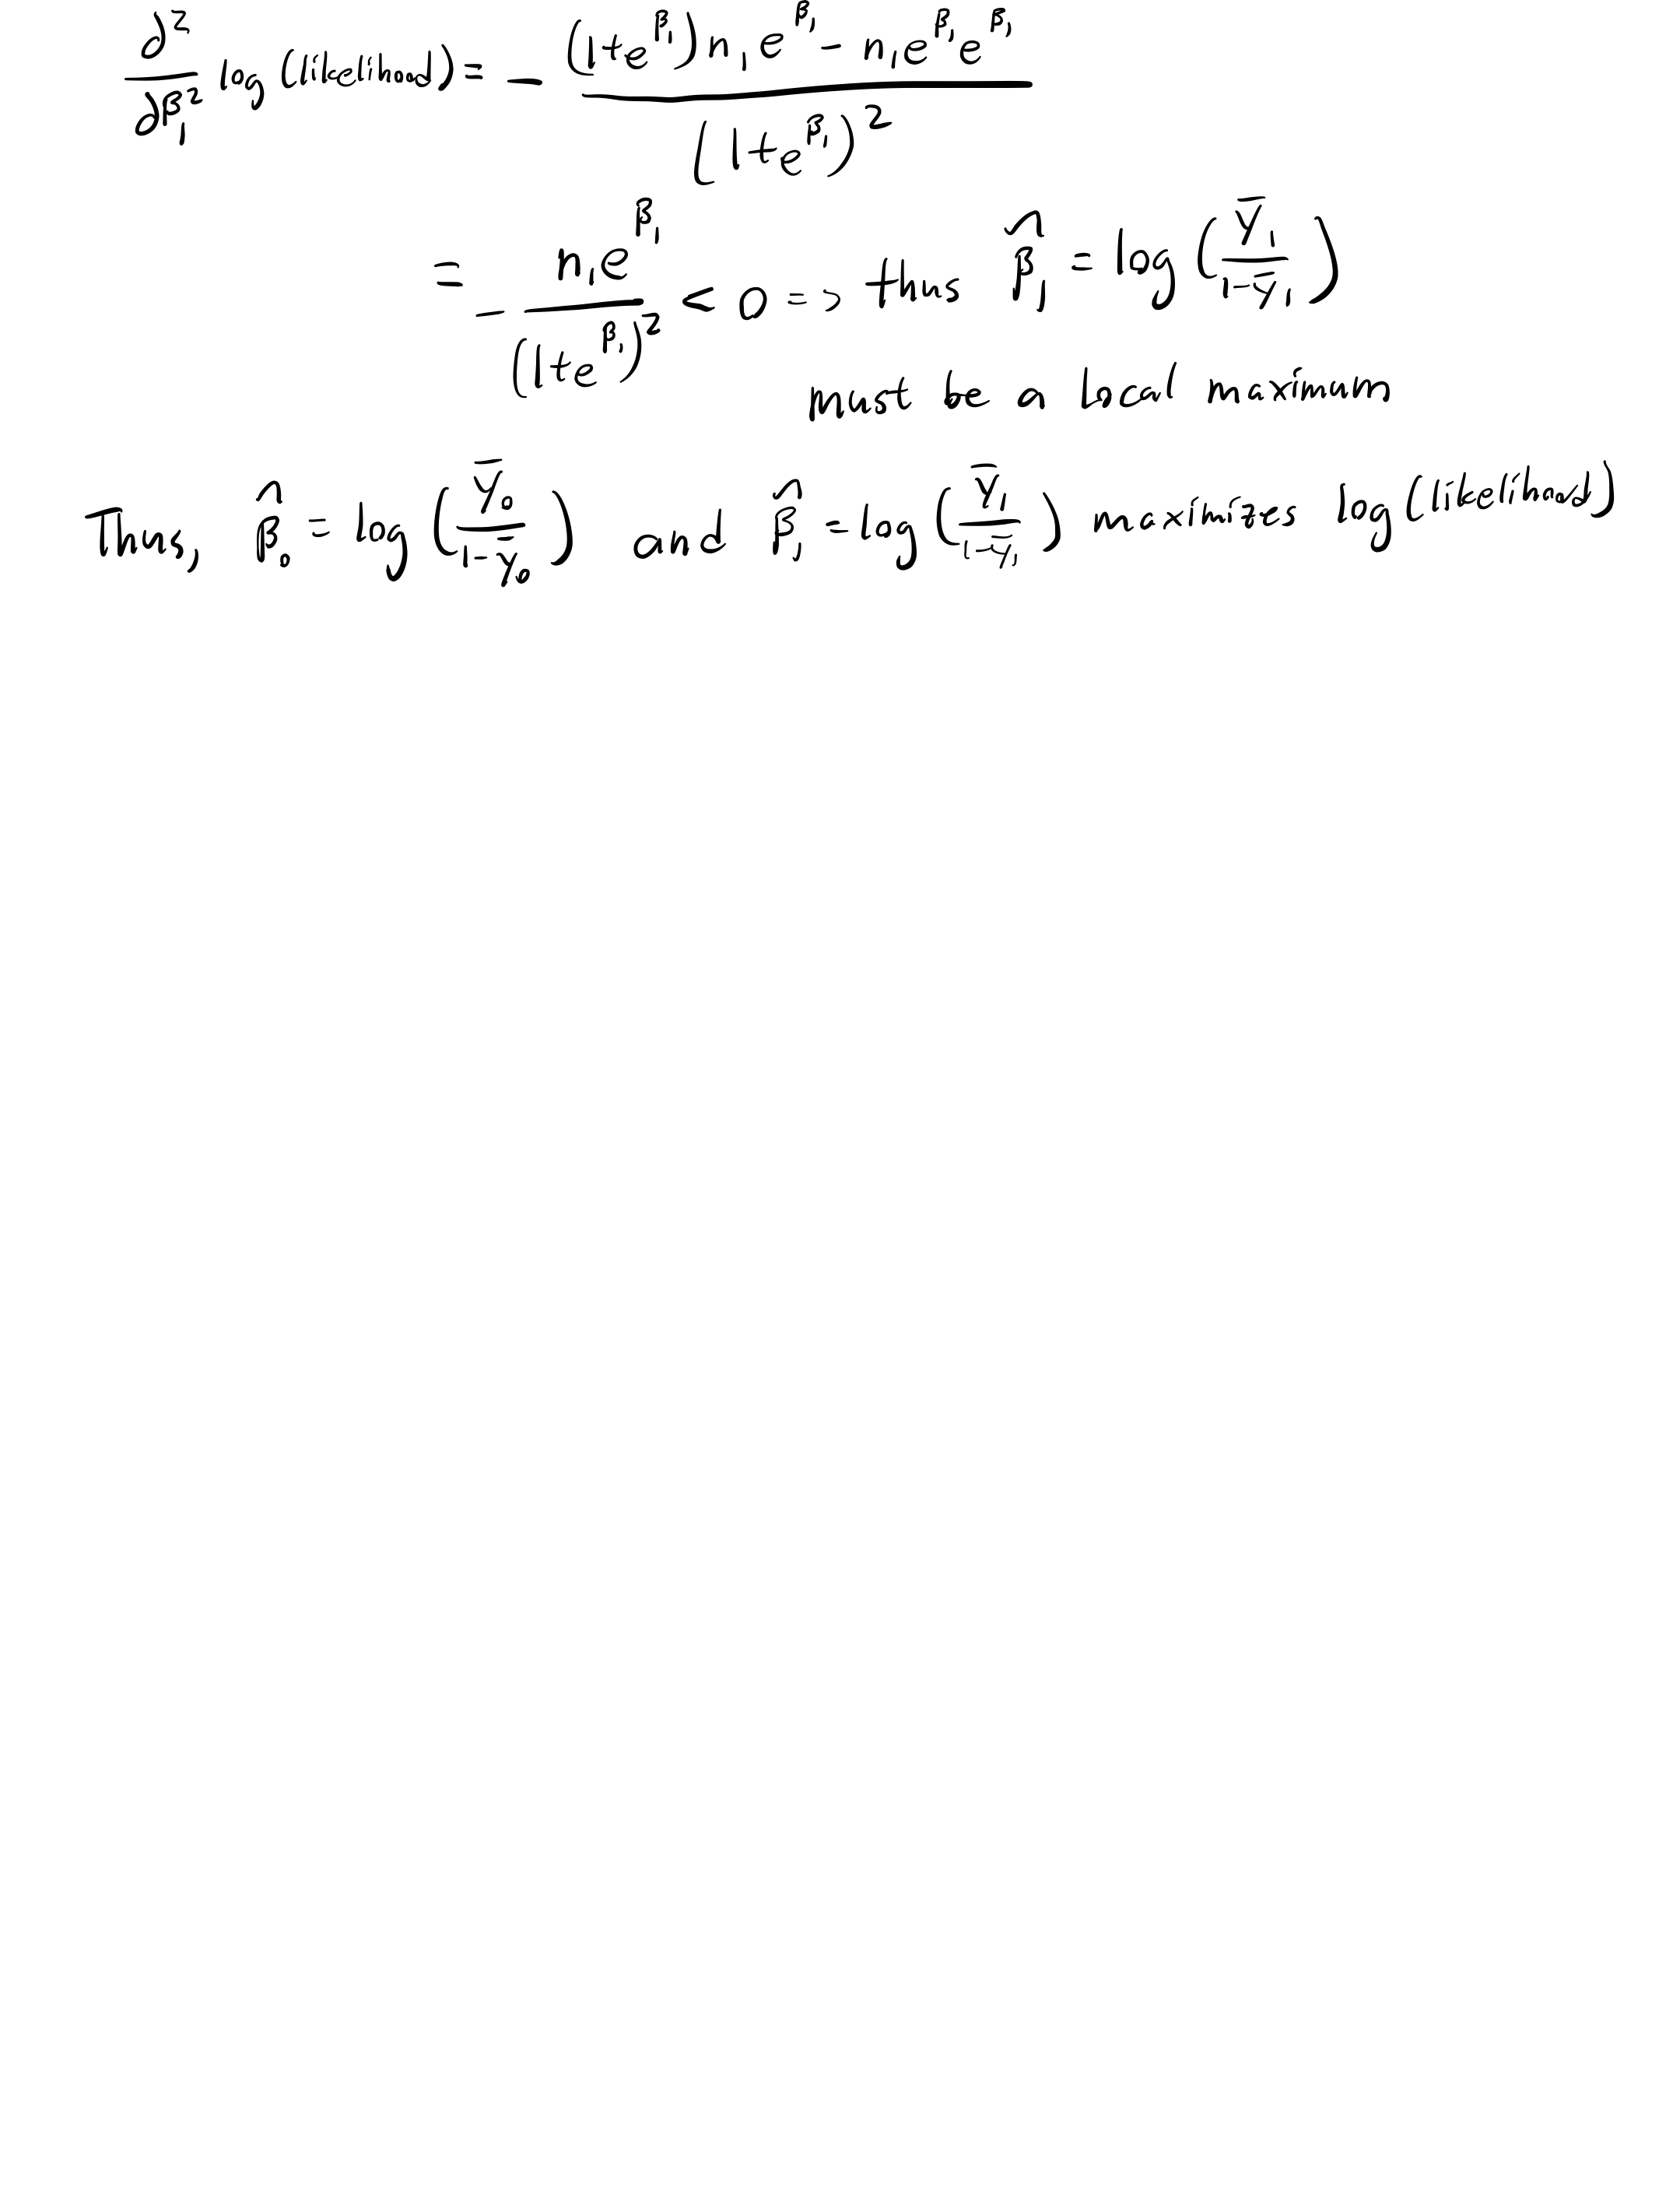 ∂²/∂β₁² log(likelihood) = - ((1+e^β₁)n₁e^β₁ - n₁e^β₁e^β₁)/(1+e^β₁)²
= - n₁e^β₁/(1+e^β₁)² < 0 => thus β̂₁ = log(Ȳ₁/(1-Ȳ₁))
must be a local maximum
Thus, β̂₀ = log(Ȳ₀/(1-Ȳ₀)) and β̂₁ = log(Ȳ₁/(1-Ȳ₁)) maximizes log(likelihood)